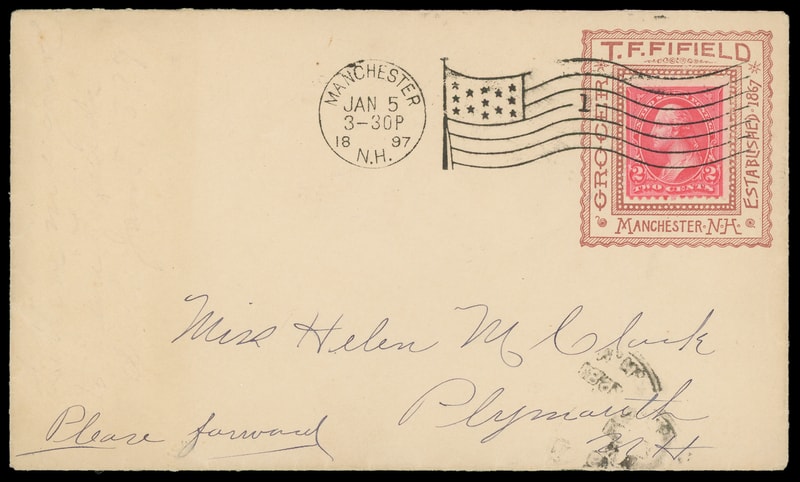 MANCHESTER
JAN 5
3-30P
18 97
N.H.
1
T.F.FIFIELD
GROCER
ESTABLISHED 1867
2 2
TWO CENTS
MANCHESTER N.H.
Miss Helen M Clark
Plymouth
NH
Please forward